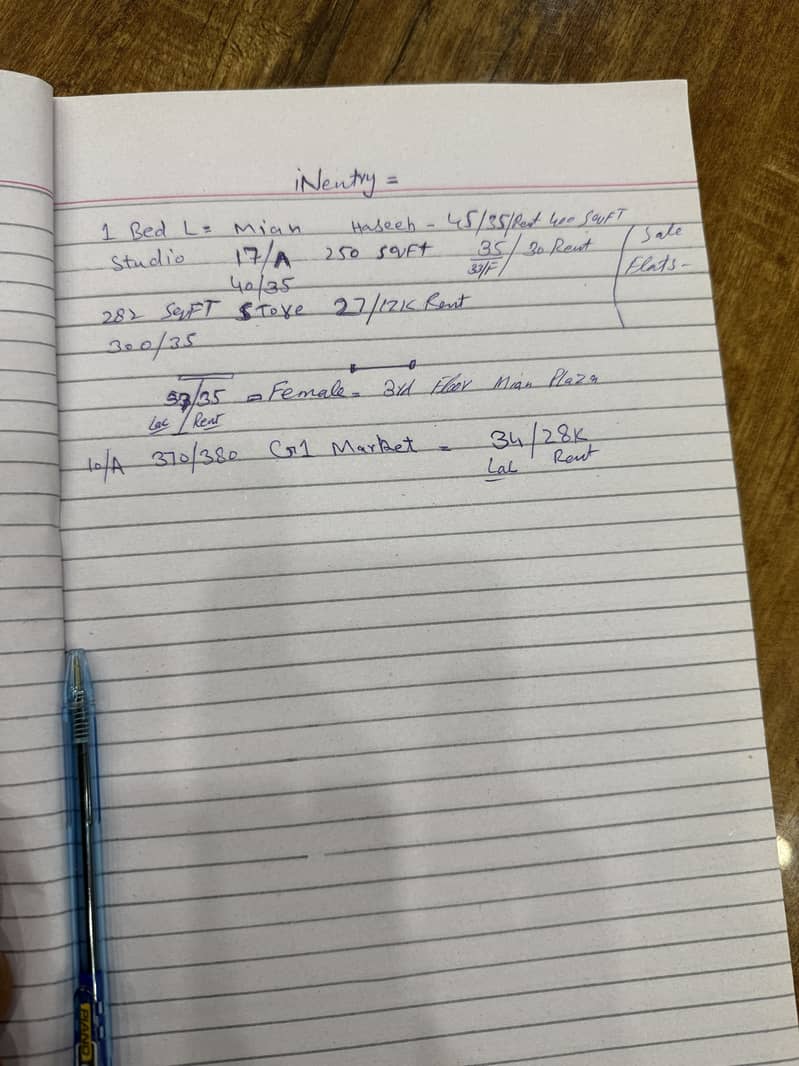 iNentry =
1 Bed L = Mian Haseeb - 45/35/Rent 400 SqFT
Studio 17/A 250 SqFt 35/30 Rent
33/F
Sale
Flats -
40/35
282 SqFT Store 27/12K Rent
300/35
/35 = Female = 3rd Floor Mian Plaza
Lac / Rent
10/A 370/380 Market = 34/28K
Lac Rent
PIANO